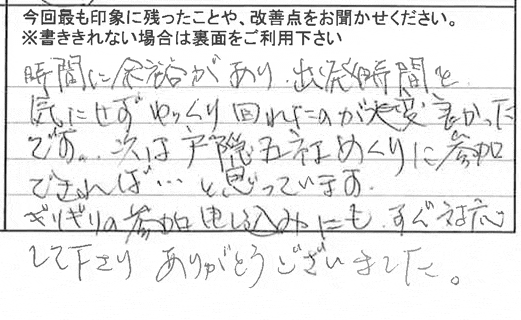 今回最も印象に残ったことや、改善点をお聞かせください。
※書ききれない場合は裏面をご利用下さい
時間に余裕があり、出発時間を
気にせずゆっくり回れたのが大変良かった
です。次は戸隠五社めぐりに参加
できれば…と思っています。
ギリギリの参加申し込みにも、すぐ対応
して下さり ありがとうございました。